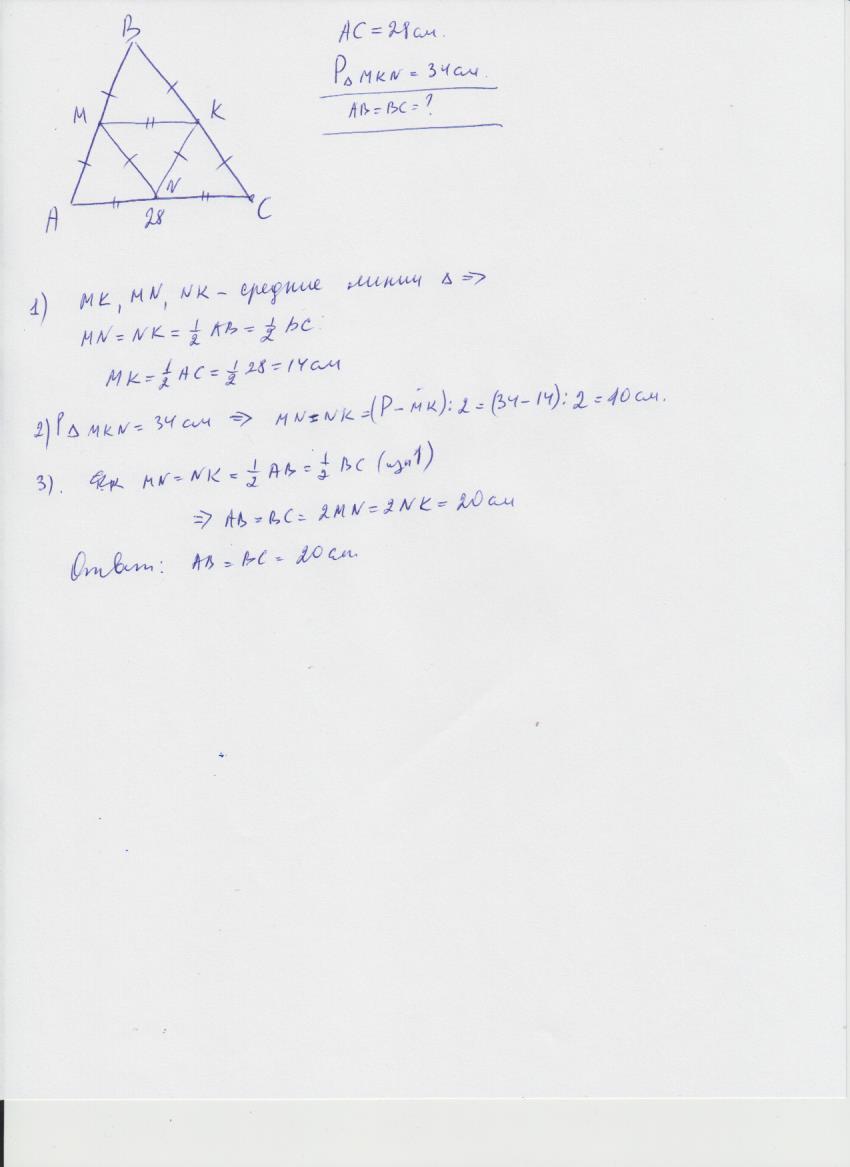 B
AC = 28 см.
P△ MKN = 34 см.
AB = BC = ?
M
K
N
A
28
C
1) MK, MN, NK – средние линии △ ⇒
MN = NK = 1/2 AB = 1/2 BC.
MK = 1/2 AC = 1/2 28 = 14 см
2) P△ MKN = 34 см ⇒ MN = NK = (P – MK) : 2 = (34 – 14) : 2 = 10 см.
3). MN = NK = 1/2 AB = 1/2 BC (из п1)
⇒ AB = BC = 2MN = 2NK = 20 см
Ответ: AB = BC = 20 см